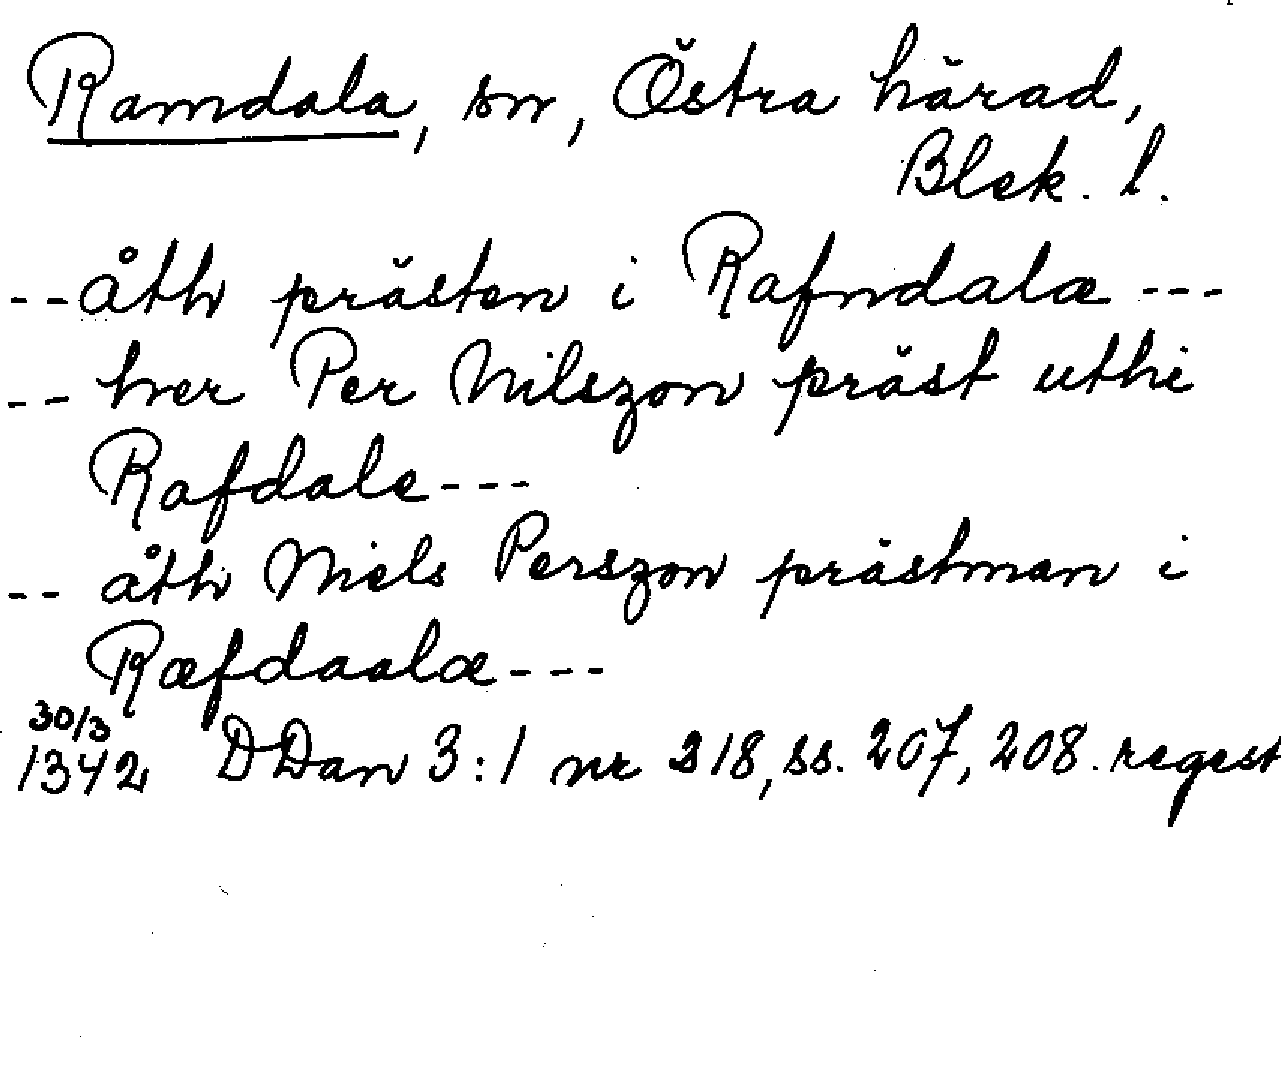 Ramdala, sn, Östra härad,
Blek. l.
-- åth prästen i Rafndalæ ---
-- her Per Nilszon präst uthi
Rafdale ---
-- åth Niels Perszon prästman i
Ræfdaalæ ---
30/3
1342 DDan 3:1 nr 218, ss. 207, 208. regest